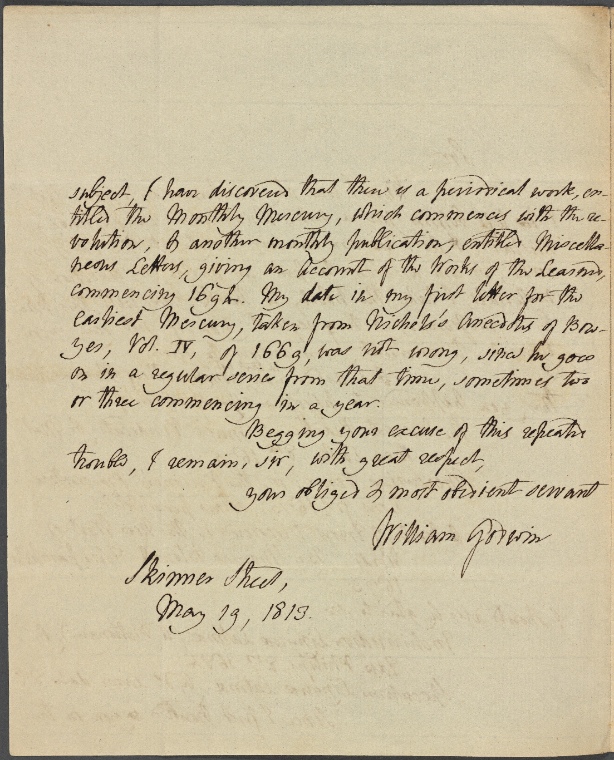 subject, I have discovered that there is a periodical work, en-
titled the Monthly Mercury, which commences with the re-
volution, & another monthly publication, entitled Miscella-
neous Letters, giving an Account of the Works of the Learned,
commencing 1694. My date in my first letter for the
earliest Mercury, taken from Nichols's Anecdotes of Bow-
yer, Vol. IV, of 1669, was not wrong, since he goes
on in a regular series from that time, sometimes two
or three commencing in a year.
Begging your excuse of this repeated
trouble, I remain, sir, with great respect,
your obliged & most obedient servant
William Godwin
Skinner Street,
May 19, 1813.